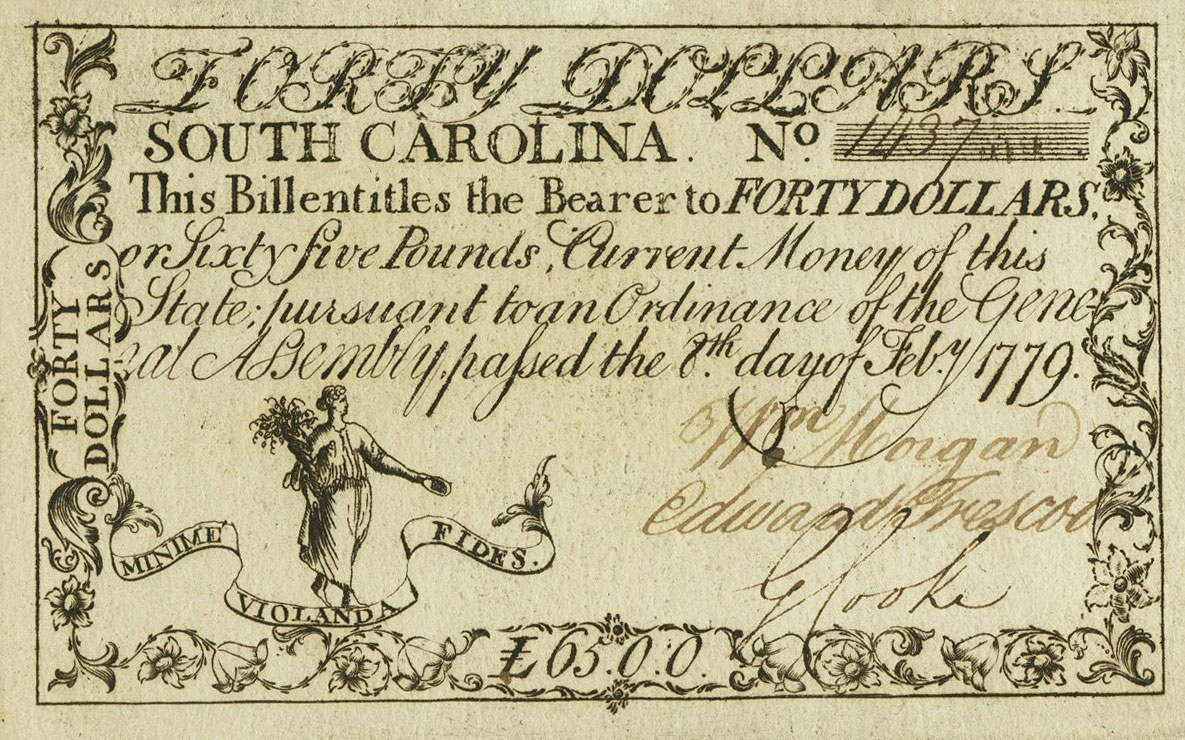 FORTY DOLLARS.
SOUTH CAROLINA. No. 1437
This Bill entitles the Bearer to FORTY DOLLARS.
or Sixty five Pounds, Current Money of this
State; pursuant to an Ordinance of the Gene-
ral Assembly, passed the 8th. day of Feby. 1779.
FORTY
DOLLARS
Wm Morgan
Edward Trescot
G Cooke
MINIME
VIOLANDA
FIDES.
£65.0.0.